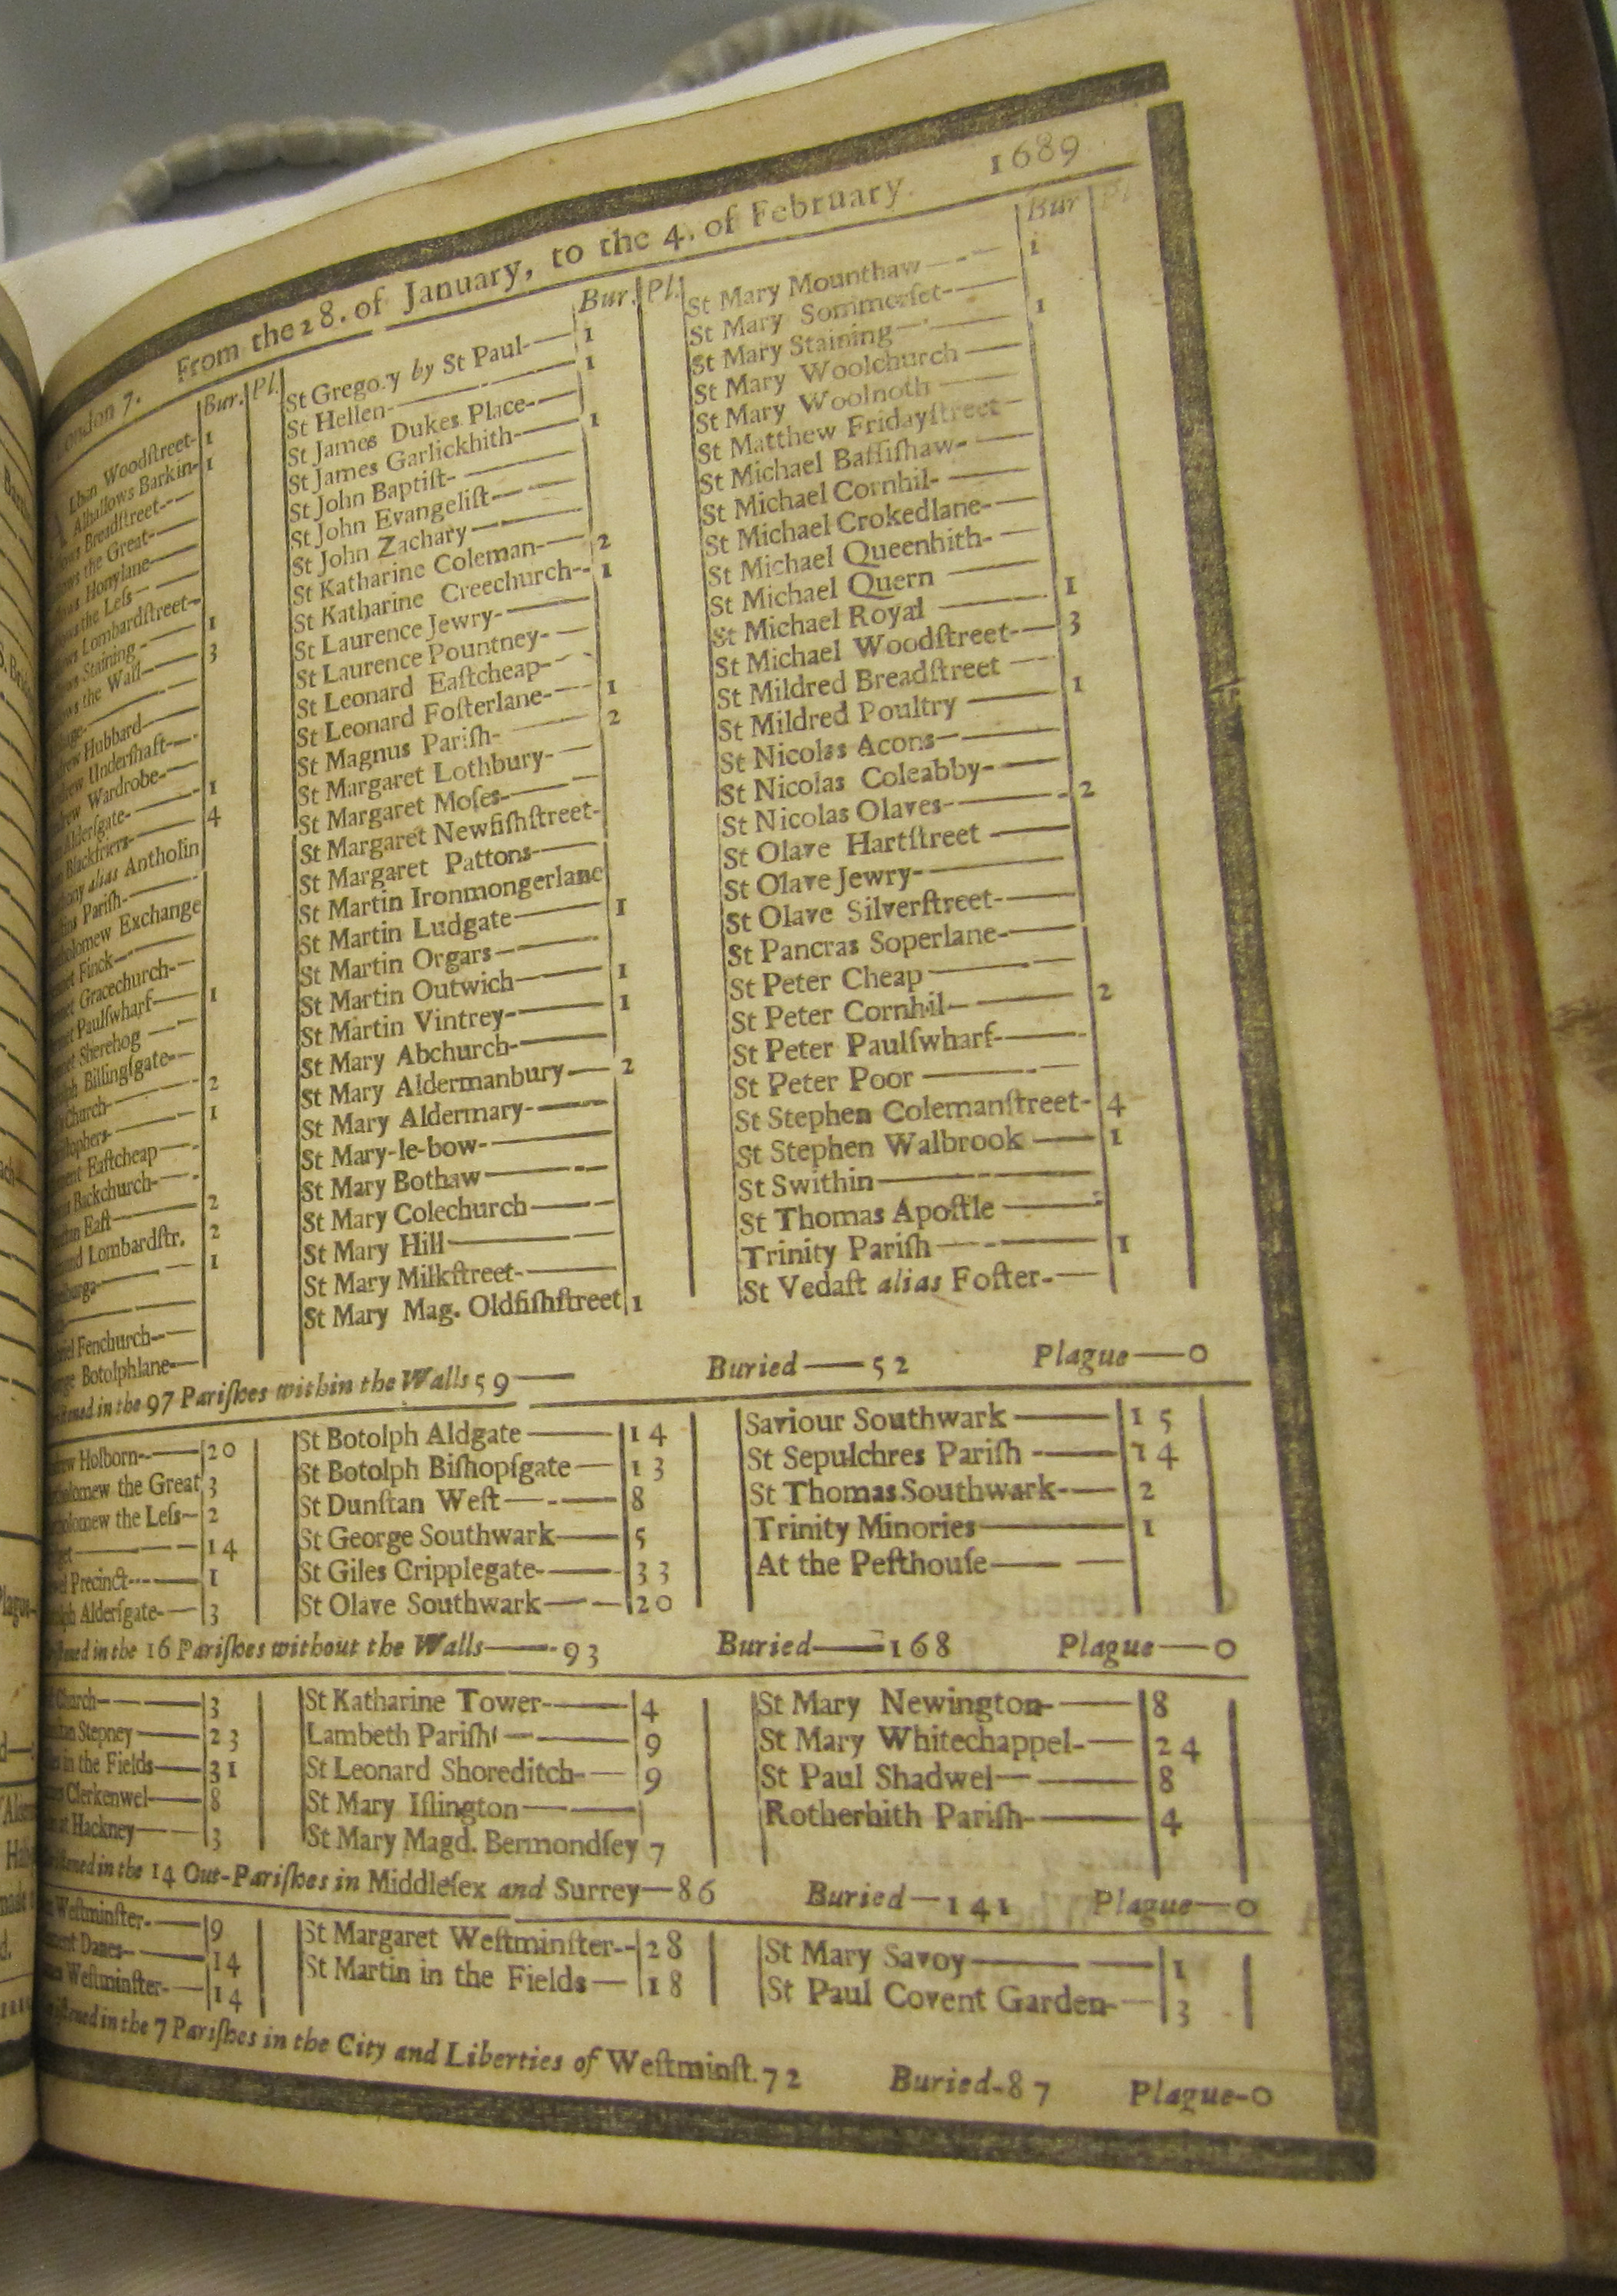 ondon 7. From the 28. of January, to the 4. of February. 1689
Bur. Pl.
lban Woodſtreet- 1
Alhallows Barkin- 1
lows Breadſtreet-
lows the Great-
lows Honylane-
lows the Leſs
lows Lombardſtreet-
lows Staining- 1
lows the Wall- 3
rew Hubbard-
rew Underſhaft-
rew Wardrobe-
Alderſgate- 1
Blackfriers- 4
alias Antholin
Pariſh-
olomew Exchange
Finck-
Gracechurch-
Paulſwharf- 1
Sherehog
Billingſgate-
Church- 2
ſtophers- 1
ment Eaſtcheap
Backchurch-
ſtan Eaſt 2
nd Lombardſtr. 2
lburga 1
Fenchurch-
Botolphlane-
Bur. Pl.
St Gregory by St Paul- 1
St Hellen- 1
St James Dukes Place-
St James Garlickhith- 1
St John Baptiſt-
St John Evangeliſt-
St John Zachary
St Katharine Coleman- 2
St Katharine Creechurch- 1
St Laurence Jewry-
St Laurence Pountney-
St Leonard Eaſtcheap-
St Leonard Foſterlane- 1
St Magnus Pariſh- 2
St Margaret Lothbury-
St Margaret Moſes-
St Margaret Newfiſhſtreet-
St Margaret Pattons-
St Martin Ironmongerlane
St Martin Ludgate 1
St Martin Orgars
St Martin Outwich 1
St Martin Vintrey- 1
St Mary Abchurch-
St Mary Aldermanbury 2
St Mary Aldermary-
St Mary-le-bow-
St Mary Bothaw
St Mary Colechurch
St Mary Hill
St Mary Milkſtreet-
St Mary Mag. Oldfiſhſtreet 1
Bur Pl.
St Mary Mounthaw 1
St Mary Sommerſet-
St Mary Staining 1
St Mary Woolchurch
St Mary Woolnoth
St Matthew Fridayſtreet
St Michael Baſſiſhaw-
St Michael Cornhil-
St Michael Crokedlane-
St Michael Queenhith-
St Michael Quern
St Michael Royal 1
St Michael Woodſtreet- 3
St Mildred Breadſtreet
St Mildred Poultry 1
St Nicolas Acons
St Nicolas Coleabby-
St Nicolas Olaves- 2
St Olave Hartſtreet
St Olave Jewry-
St Olave Silverſtreet-
St Pancras Soperlane-
St Peter Cheap
St Peter Cornhil 2
St Peter Paulſwharf
St Peter Poor
St Stephen Colemanſtreet- 4
St Stephen Walbrook 1
St Swithin
St Thomas Apoſtle
Trinity Pariſh 1
St Vedaſt alias Foſter-
ſtened in the 97 Pariſhes within the Walls 59 Buried 52 Plague 0
rew Holborn- 20
olomew the Great 3
olomew the Leſs 2
14
Precinct- 1
lph Alderſgate- 3
St Botolph Aldgate 14
St Botolph Biſhopſgate 13
St Dunſtan Weſt 8
St George Southwark 5
St Giles Cripplegate- 33
St Olave Southwark 20
Saviour Southwark 15
St Sepulchres Pariſh 14
St Thomas Southwark- 2
Trinity Minories 1
At the Peſthouſe
ſtened in the 16 Pariſhes without the Walls 93 Buried 168 Plague 0
Church- 3
ſtan Stepney 23
in the Fields 31
Clerkenwel 8
at Hackney 3
St Katharine Tower- 4
Lambeth Pariſh 9
St Leonard Shoreditch- 9
St Mary Iſlington
St Mary Magd. Bermondſey 7
St Mary Newington- 8
St Mary Whitechappel- 24
St Paul Shadwel 8
Rotherhith Pariſh- 4
ſtened in the 14 Out-Pariſhes in Middleſex and Surrey 86 Buried 141 Plague 0
Weſtminſter- 9
ment Danes- 14
Weſtminſter- 14
St Margaret Weſtminſter- 28
St Martin in the Fields 18
St Mary Savoy 1
St Paul Covent Garden- 3
ſtened in the 7 Pariſhes in the City and Liberties of Weſtminſt. 72 Buried-87 Plague-0